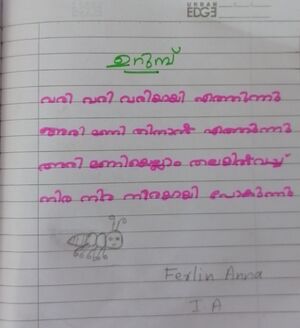 URBAN
EDGE
ഉറുമ്പ്
വരി വരി വരിയായി എത്തുന്നു
അരി മണി തിന്നാൻ എത്തുന്നു
അരി മണിയെല്ലാം തലയിൽവച്ച്
നിര നിര നിരയായി പോകുന്നു
Ferlin Anna
I A